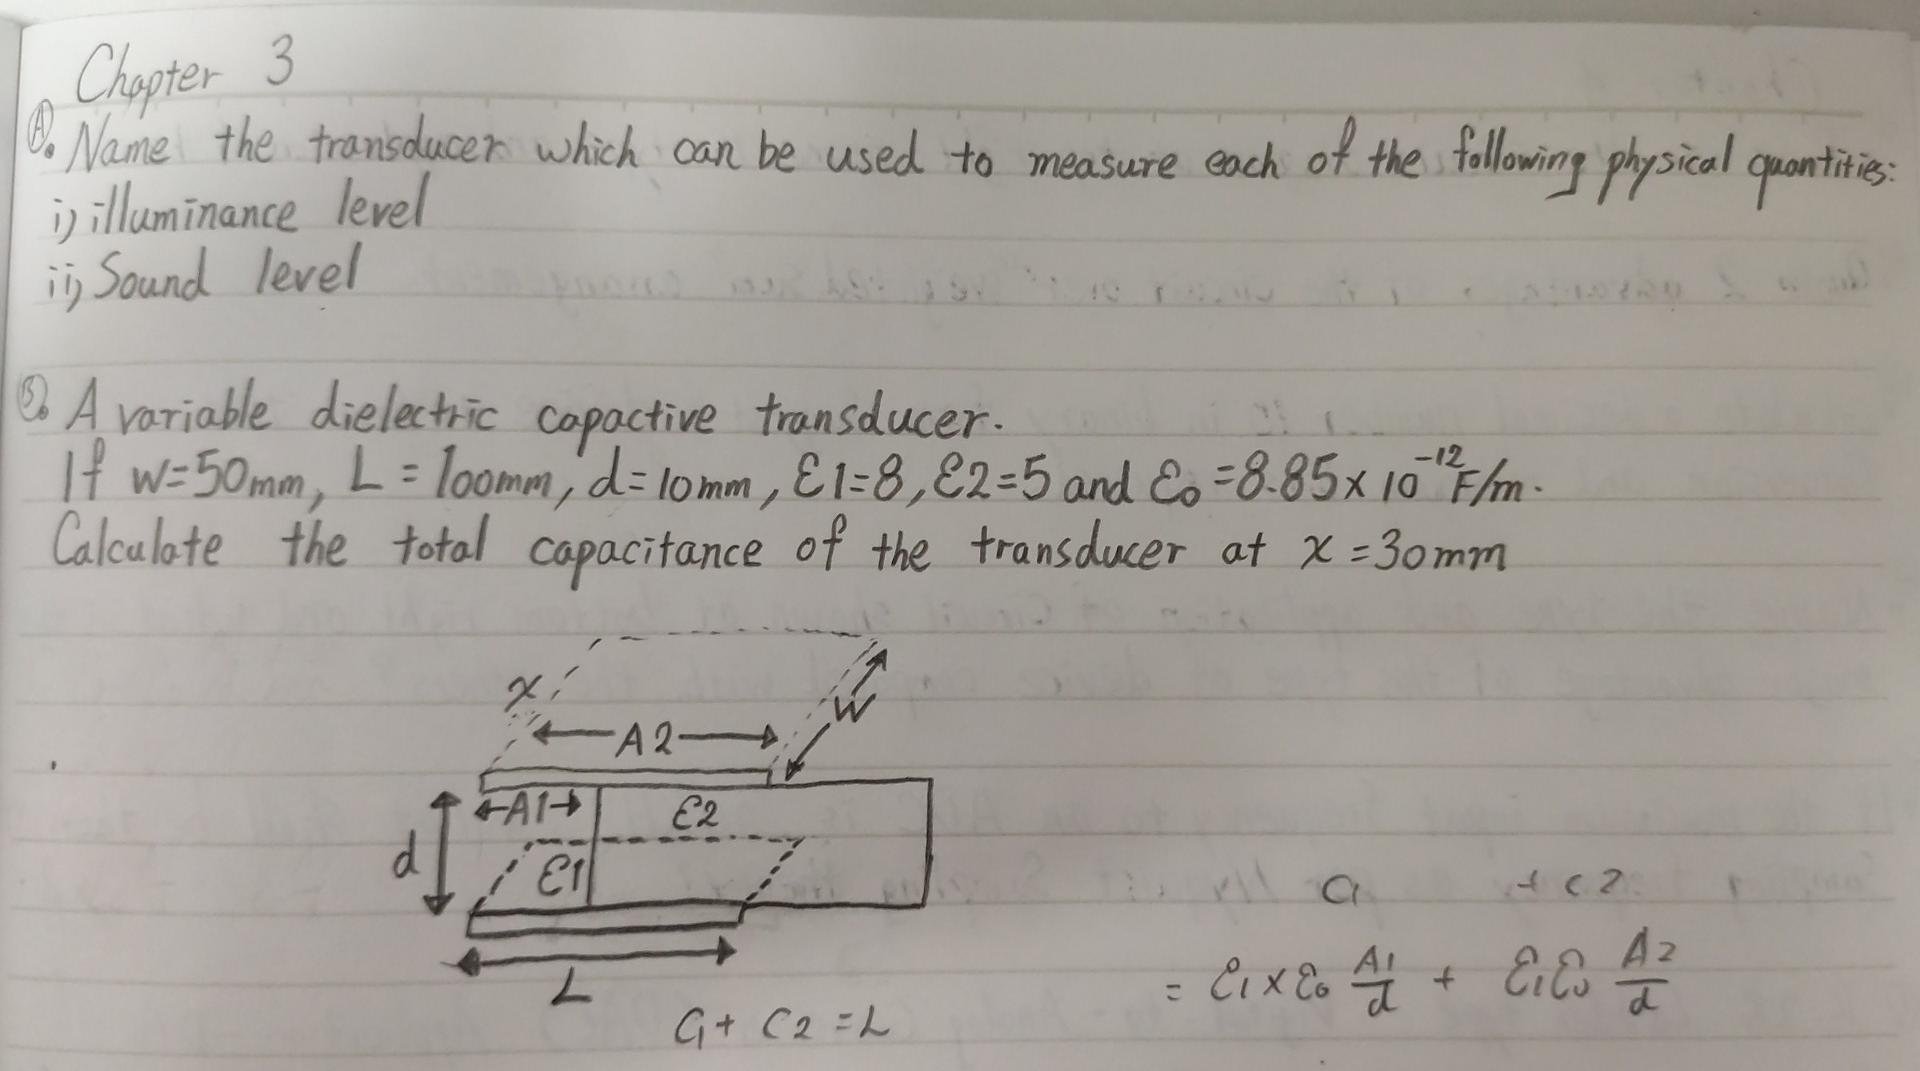 Chapter 3
A. Name the transducer which can be used to measure each of the following physical quantities:
i) illuminance level
ii) Sound level
B. A variable dielectric capactive transducer.
If w=50mm, L = 100mm, d=10mm, ε1=8, ε2=5 and ε₀ =8.85x10⁻¹²F/m.
Calculate the total capacitance of the transducer at x =30mm
x
W
A2
A1
ε2
d
ε1
L
C1 + C2 = L
C1 + C2
= ε1 x ε₀ A1/d + ε1ε₀ A2/d